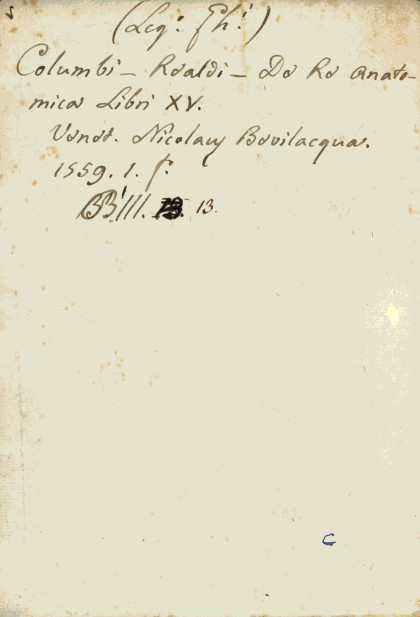 (Leg: Gh:)
Columbi - Realdi - De Re anato-
mica Libri XV.
Venet. Nicolaus Bevilacqua.
1559. 1. f.
BB.III. 13.
C